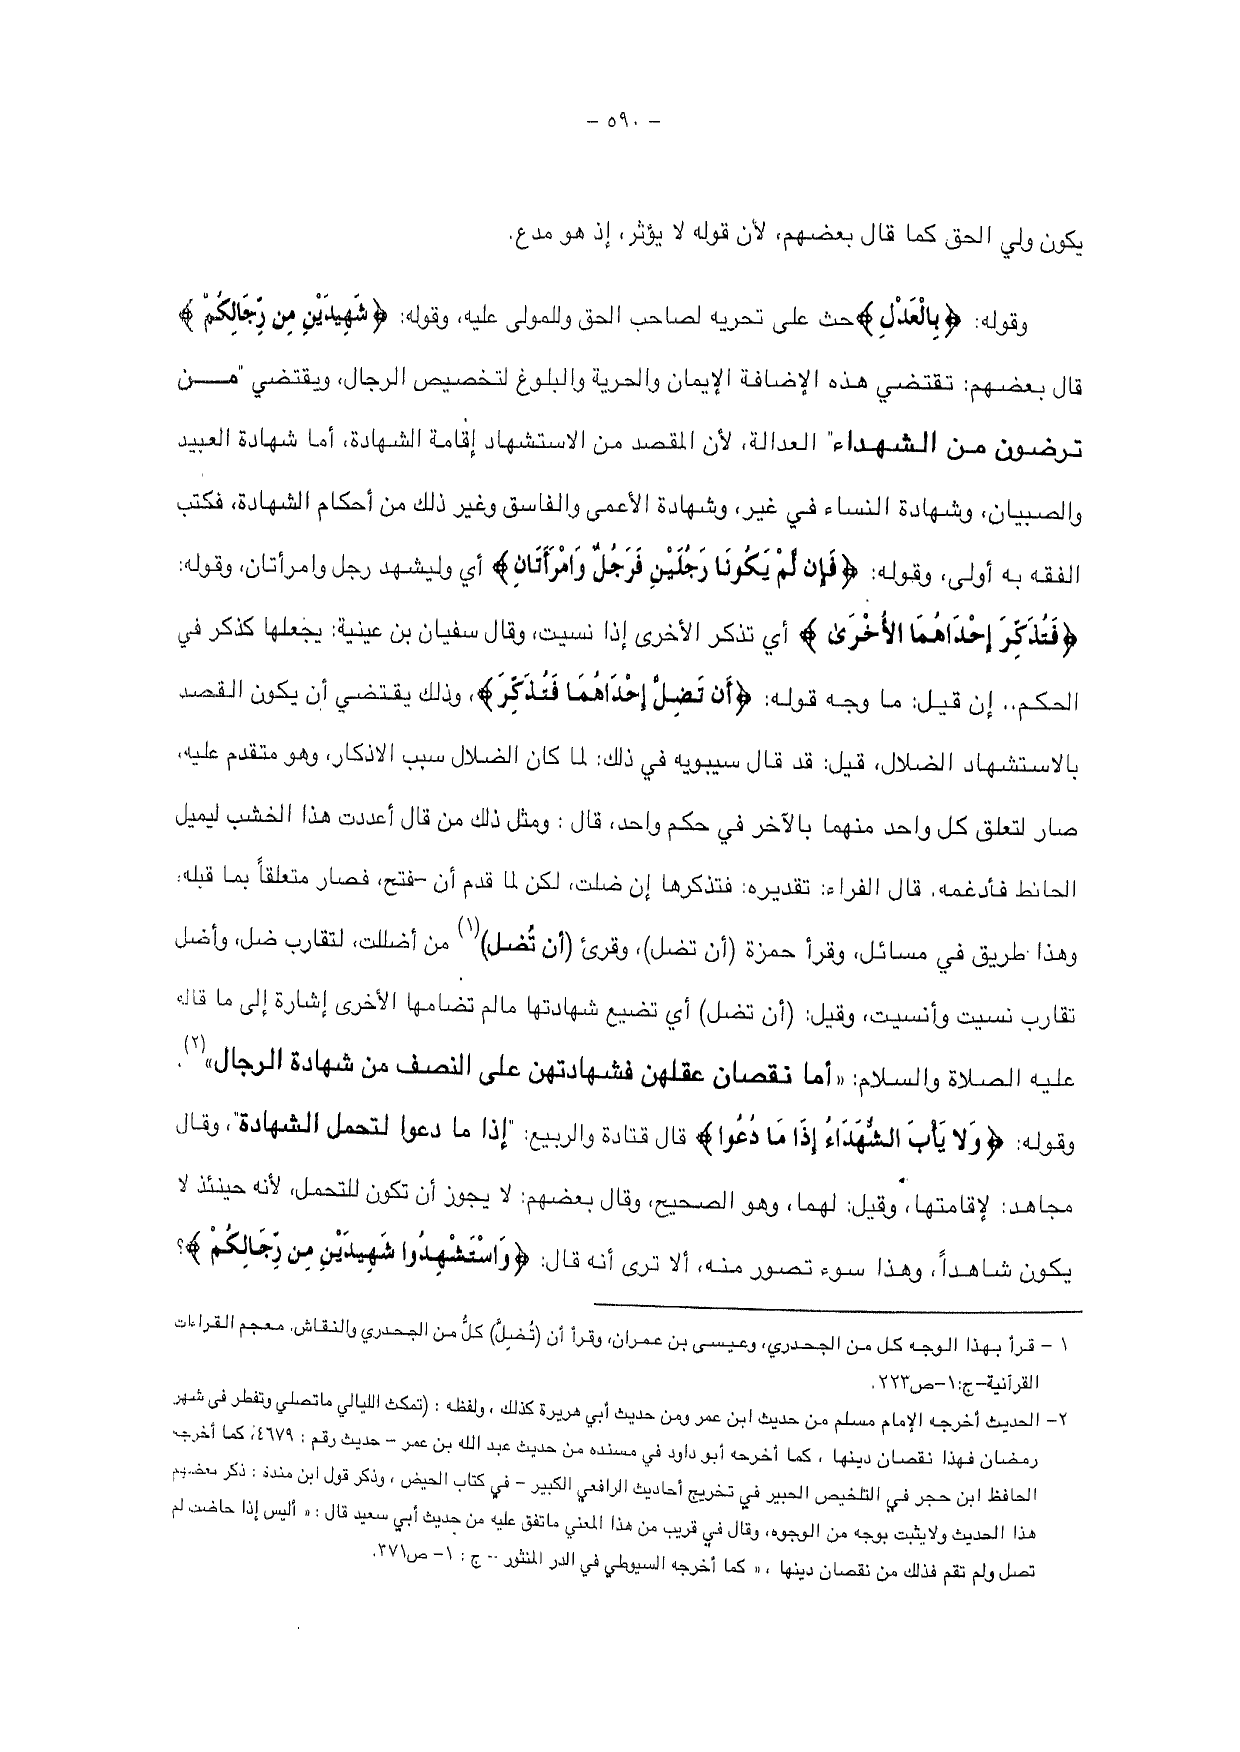 – ٥٩٠ –
يكون ولي الحق كما قال بعضهم، لأن قوله لا يؤثر، إذ هو مدع.
وقوله: ﴿بِالْعَدْلِ﴾ حث على تحريه لصاحب الحق وللمولى عليه، وقوله: ﴿شَهِيدَيْنِ مِن رِّجَالِكُمْ﴾
قال بعضهم: تقتضي هذه الإضافة الإيمان والحرية والبلوغ لتخصيص الرجال، ويقتضي "مــن
ترضون من الشهداء" العدالة، لأن المقصد من الاستشهاد إقامة الشهادة، أما شهادة العبيد
والصبيان، وشهادة النساء في غير، وشهادة الأعمى والفاسق وغير ذلك من أحكام الشهادة، فكتب
الفقه به أولى، وقوله: ﴿فَإِن لَّمْ يَكُونَا رَجُلَيْنِ فَرَجُلٌ وَامْرَأَتَانِ﴾ أي وليشهد رجل وامرأتان، وقوله:
﴿فَتُذَكِّرَ إِحْدَاهُمَا الأُخْرَىٰ﴾ أي تذكر الأخرى إذا نسيت، وقال سفيان بن عينية: يجعلها كذكر في
الحكم.. إن قيل: ما وجه قوله: ﴿أَن تَضِلَّ إِحْدَاهُمَا فَتُذَكِّرَ﴾، وذلك يقتضي أن يكون القصد
بالاستشهاد الضلال، قيل: قد قال سيبويه في ذلك: لما كان الضلال سبب الاذكار، وهو متقدم عليه،
صار لتعلق كل واحد منهما بالآخر في حكم واحد، قال : ومثل ذلك من قال أعددت هذا الخشب ليميل
الحائط فأدغمه. قال الفراء: تقديره: فتذكرها إن ضلت، لكن لما قدم أن -فتح، فصار متعلقاً بما قبله،
وهذا طريق في مسائل، وقرأ حمزة (أن تضل)، وقرئ (أن تُضل)(١) من أضللت، لتقارب ضل، وأضل
تقارب نسيت وأنسيت، وقيل: (أن تضل) أي تضيع شهادتها مالم تضامها الأخرى إشارة إلى ما قاله
عليه الصلاة والسلام: «أما نقصان عقلهن فشهادتهن على النصف من شهادة الرجال»(٢).
وقوله: ﴿وَلا يَأْبَ الشُّهَدَاءُ إِذَا مَا دُعُوا﴾ قال قتادة والربيع: "إذا ما دعوا لتحمل الشهادة"، وقال
مجاهد: لإقامتها، وقيل: لهما، وهو الصحيح، وقال بعضهم: لا يجوز أن تكون للتحمل، لأنه حينئذ لا
يكون شاهداً، وهذا سوء تصور منه، ألا ترى أنه قال: ﴿وَاسْتَشْهِدُوا شَهِيدَيْنِ مِن رِّجَالِكُمْ﴾؟
١ – قرأ بهذا الوجه كل من الجحدري، وعيسى بن عمران، وقرأ أن (تُضِلَّ) كلٌّ من الجحدري والنقاش. معجم القراءات
القرآنية–ج:١–ص٢٢٣.
٢– الحديث أخرجه الإمام مسلم من حديث ابن عمر ومن حديث أبي هريرة كذلك ، ولفظه : (تمكث الليالي ماتصلي وتفطر في شهر
رمضان فهذا نقصان دينها ، كما أخرجه أبو داود في مسنده من حديث عبد الله بن عمر – حديث رقم : ٤٦٧٩، كما أخرجه
الحافظ ابن حجر في التلخيص الحبير في تخريج أحاديث الرافعي الكبير – في كتاب الحيض ، وذكر قول ابن مندة : ذكر بعضهم
هذا الحديث ولايثبت بوجه من الوجوه، وقال في قريب من هذا المعنى ماتفق عليه من حديث أبي سعيد قال : « أليس إذا حاضت لم
تصل ولم تقم فذلك من نقصان دينها ، » كما أخرجه السيوطي في الدر المنثور – ج : ١– ص٣٧١.